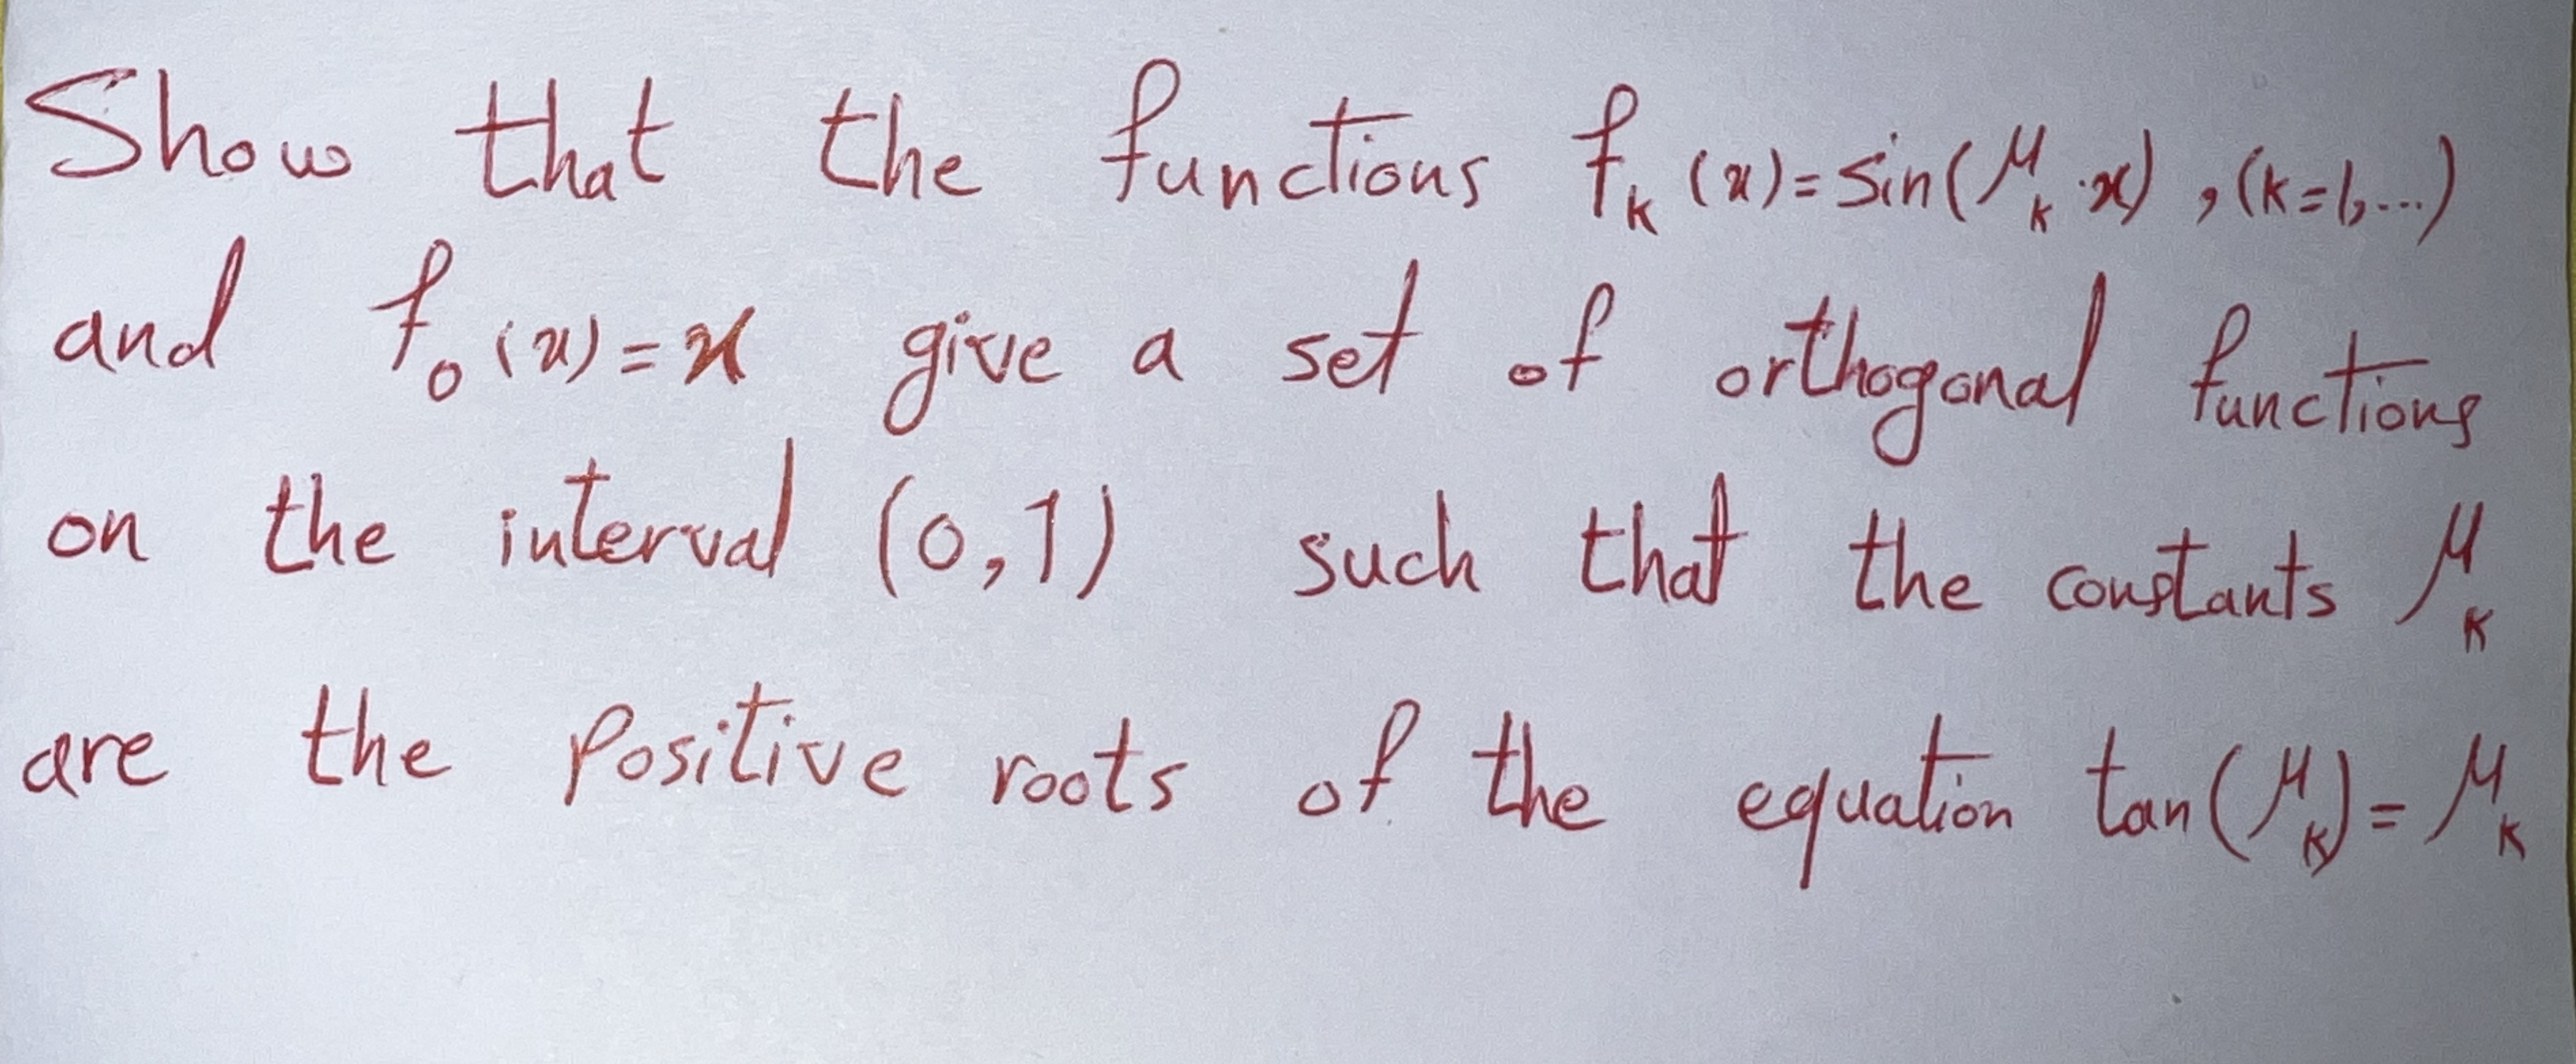 Show that the functions f_k (x)=sin(μ_k·x) , (k=1,...)
and f_0 (x)=x give a set of orthogonal functions
on the interval (0,1) such that the constants μ_k
are the positive roots of the equation tan(μ_k)=μ_k